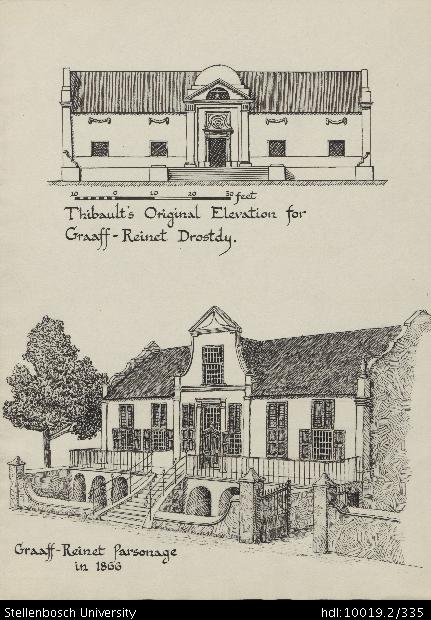 10 0 10 20 30 feet
Thibault's Original Elevation for
Graaff-Reinet Drostdy.
Graaff-Reinet Parsonage
in 1866
Stellenbosch University
hdl:10019.2/335